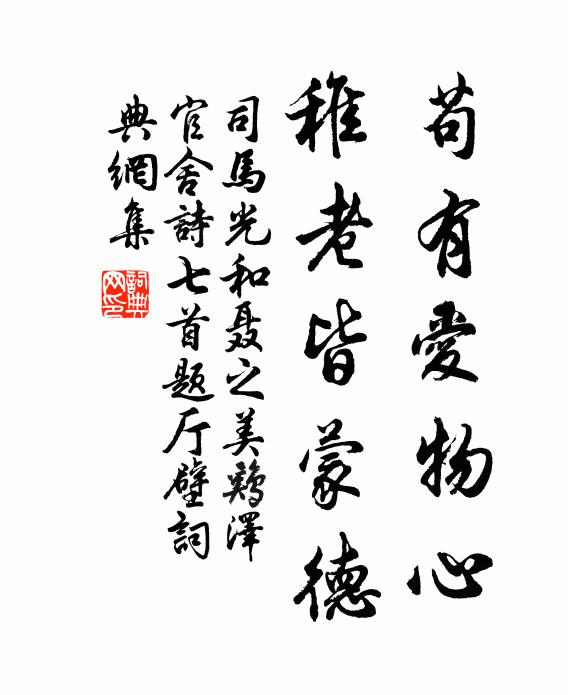 苟有愛物心
稚老皆蒙德
司馬光和聂之美鷄澤
官舍詩七首题厅壁詞
典網集
詞典网印